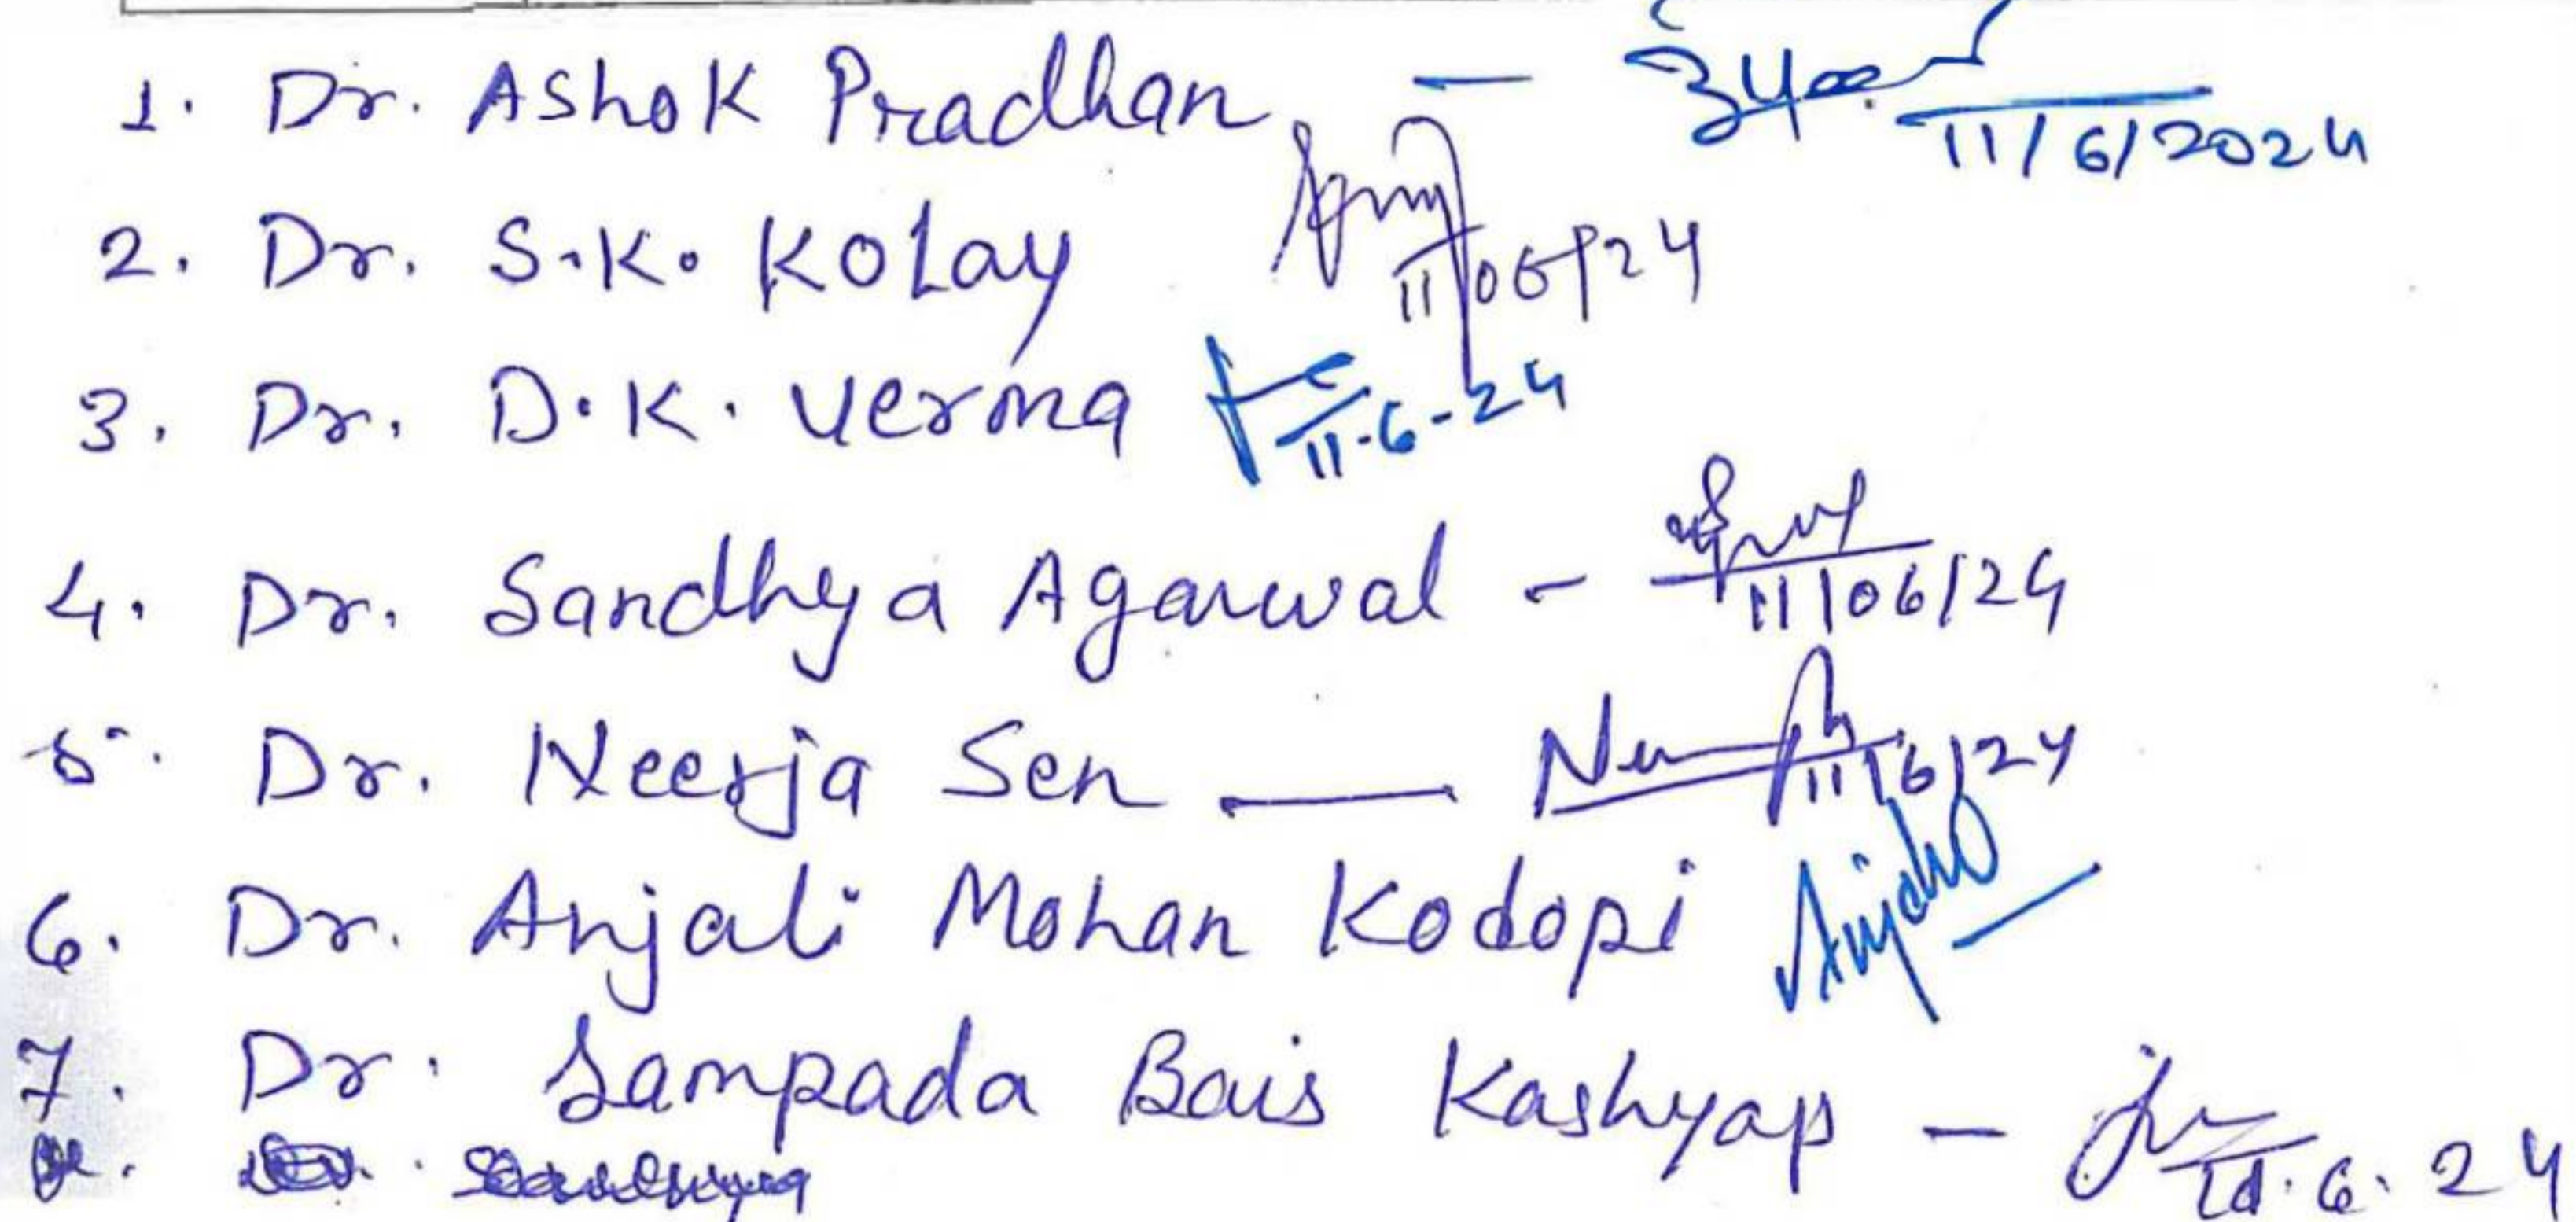 1. Dr. Ashok Pradhan — 11/6/2024
2. Dr. S.K. Kolay 11/06/24
3. Dr. D.K. Verma 11.6-24
4. Dr. Sandhya Agarwal - 11/06/24
5. Dr. Neerja Sen — 11/6/24
6. Dr. Anjali Mohan Kodopi Anjali
7. Dr. Sampada Bais Kashyap - 11.6.24